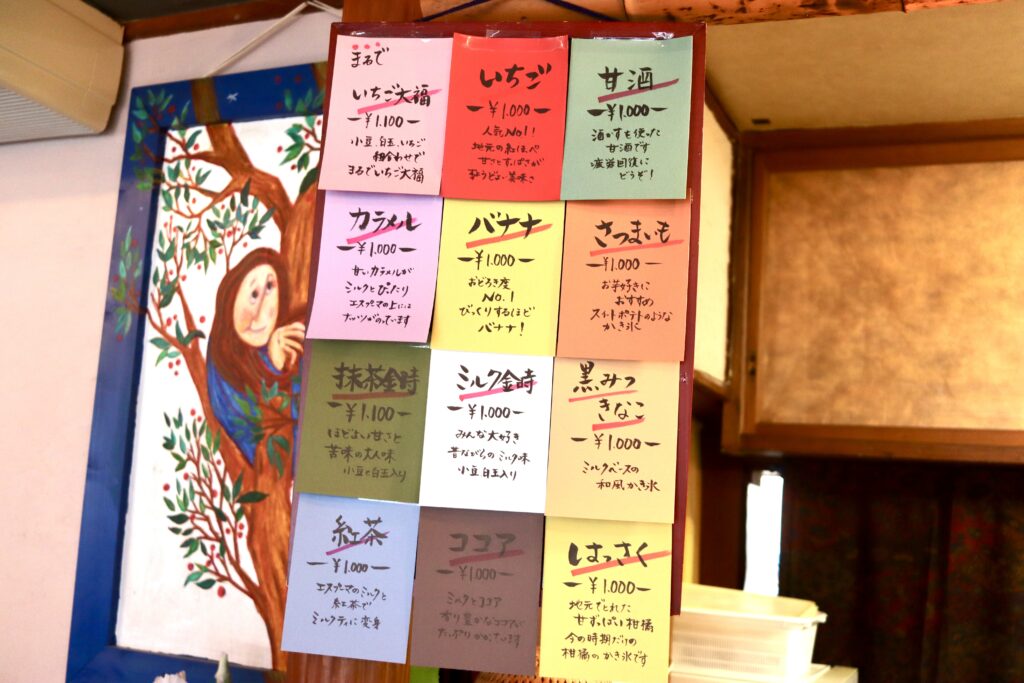 まるで
いちご大福
¥1.100
小豆、白玉、いちご
組合わせで
まるでいちご大福
いちご
¥1.000
人気No1!
地元の紅ほっぺ
甘さとすっぱさが
丁うどよい美味さ
甘酒
¥1.000
酒かすを使った
甘酒です
疲労回復に
どうぞ!
カラメル
¥1.000
甘いカラメルが
ミルクとぴったり
エスプーマの上には
ナッツがのっています
バナナ
¥1.000
おどろき度
No.1
びっくりするほど
バナナ!
さつまいも
¥1.000
お芋好きに
おすすめ
スイートポテトのような
かき氷
抹茶金時
¥1.100
ほどよい甘さと
苦味の大人味
小豆と白玉入り
ミルク金時
¥1.000
みんな大好き
昔ながらのミルク味
小豆白玉入り
黒みつ
きなこ
¥1.000
ミルクベースの
和風かき氷
紅茶
¥1.000
エスプーマのミルクと
紅茶で
ミルクティに変身
ココア
¥1.000
ミルクとココア
香り豊かなココアが
たっぷりかかっています
はっさく
¥1.000
地元でとれた
甘ずっぱい柑橘
今の時期だけの
柑橘のかき氷です